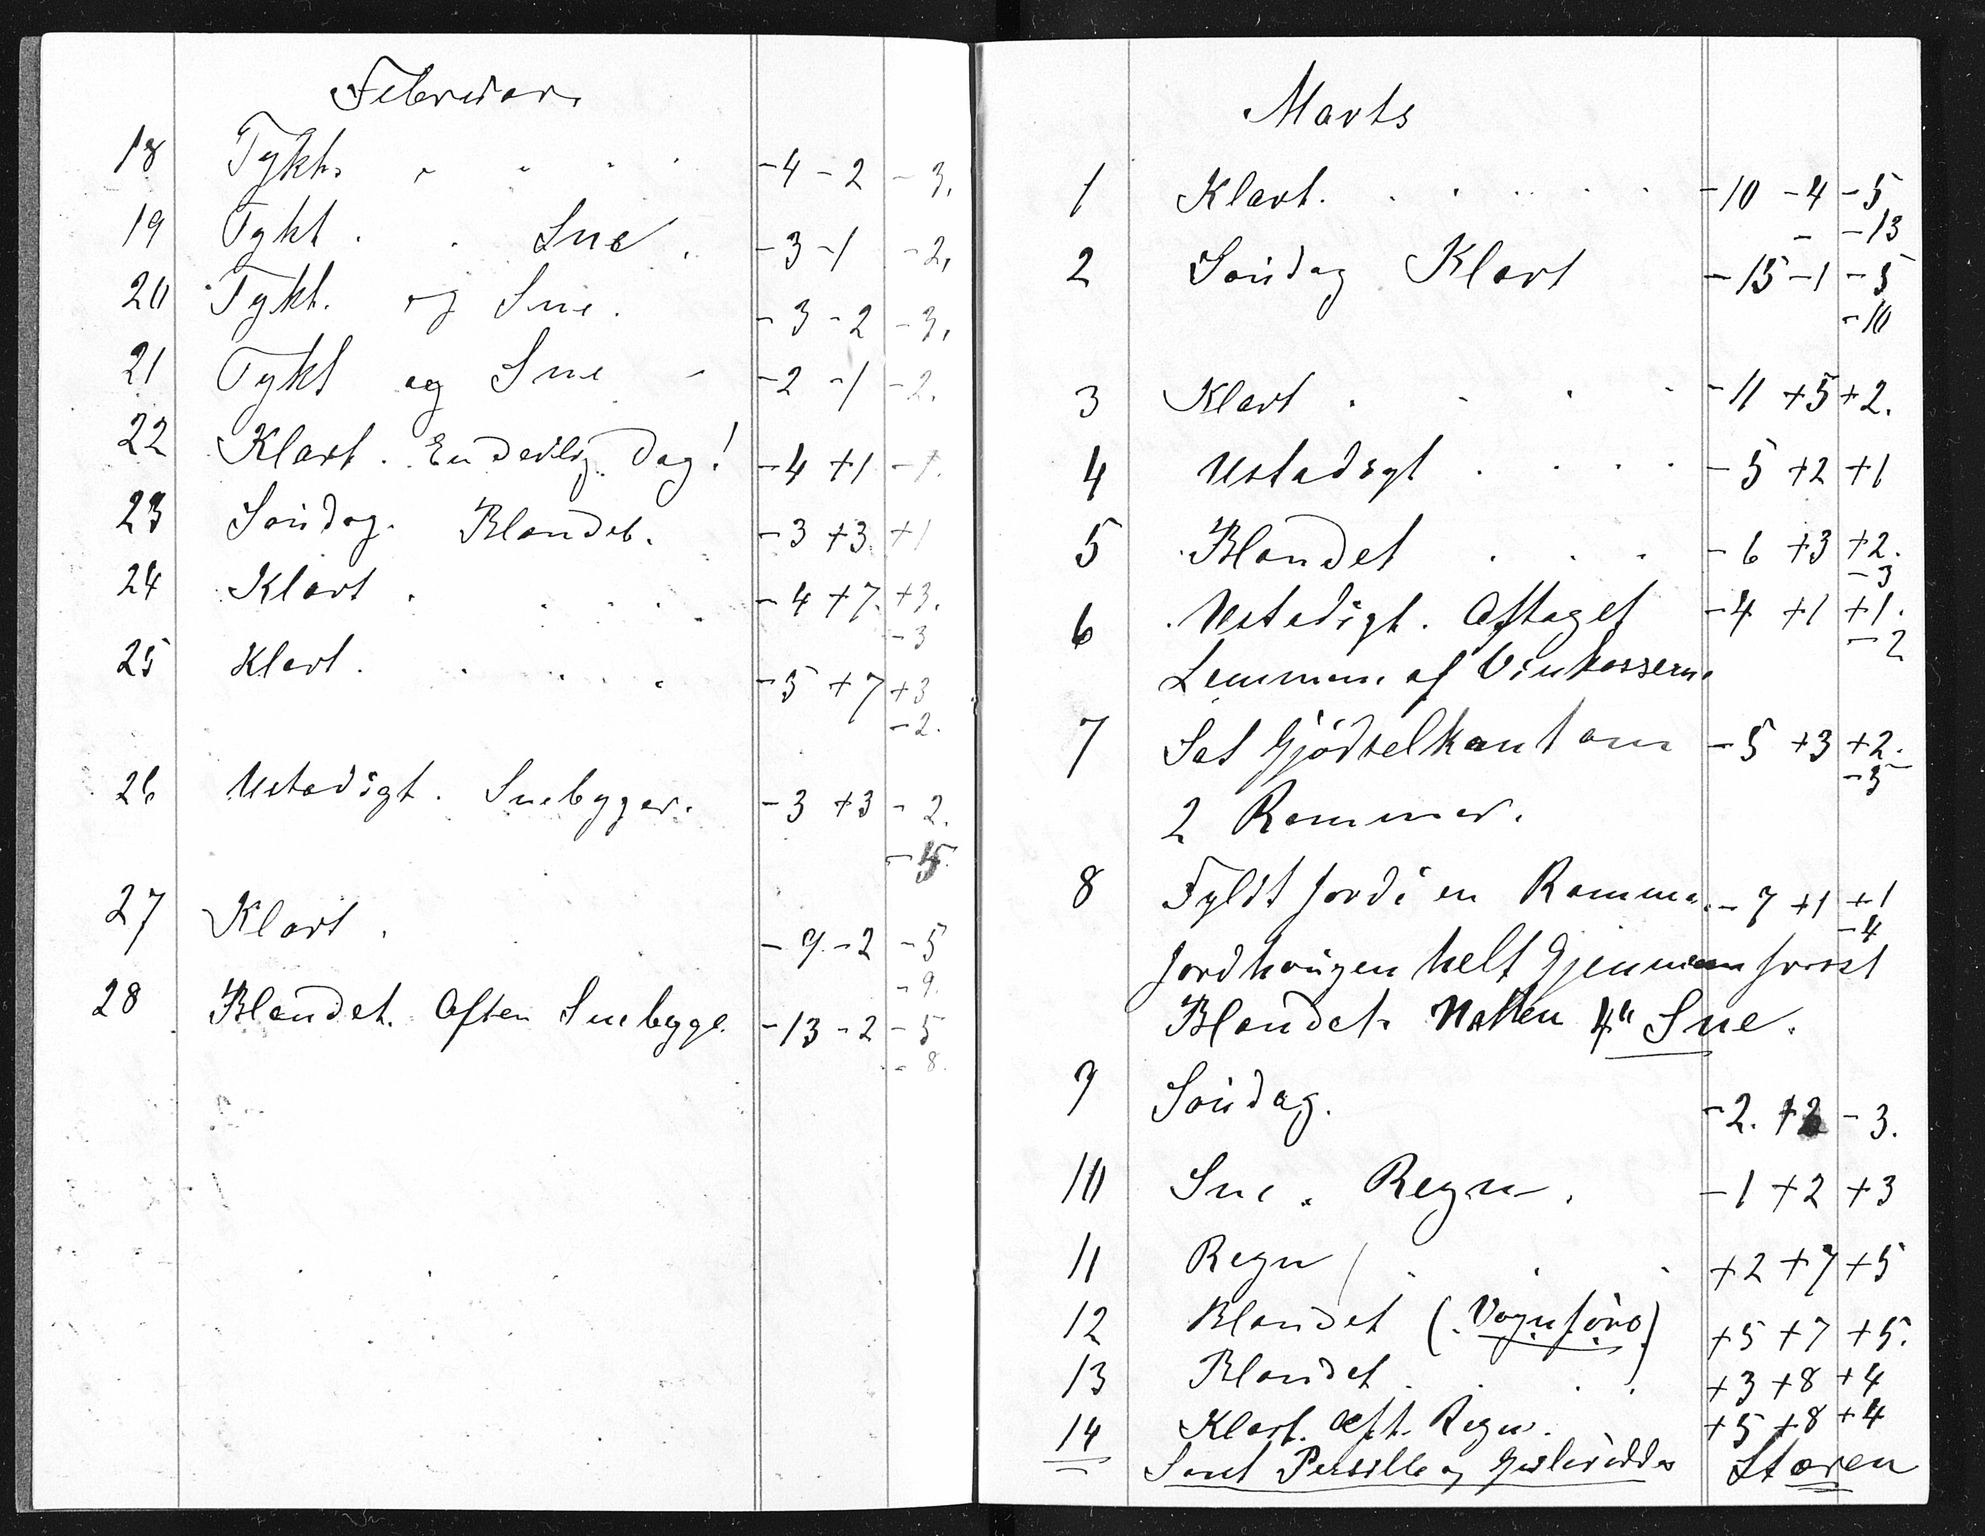 Februar.
18 Tykt. -4 -2 -3.
19 Tykt . . Sne . -3 -1 -2.
20 Tykt. og Sne. -3 -2 -3.
21 Tykt og Sne -2 -1 -2.
22 Klart. En deilig Dag! -4 +1 -1.
23 Søndag. Blandet. -3 +3 +1
24 Klart . -4 +7. +3.
-3
25 Klart. -5 +7 +3
-2.
26 Ustadigt. Snebyger. -3 +3 -2.
-15.
27 Klart. -9. -2 -5
-9.
28 Blandet. Aften Snebyge. -13 -2 -5
-8.
Marts
1 Klart. -10 -4 -5
-13
2 Søndag Klart -15 -1 -5
-10
3 Klart . -11 +5 +2.
4 Ustadigt . -5 +2 +1
5 Blandet -6 +3 +2.
-3
6 Ustadigt. Aftaget -4 +1 +1.
-2
Lemmene af Vinkasserne
7 Sat Gjødselkant om -5 +3 +2.
-3
2 Rammer.
8 Fyldt Jord i en Ramme. -7 +1 +1
-4
Jordhougen helt Gjennemfrosset
Blandet. Natten 4" Sne.
9 Søndag. -2. +2 -3.
10 Sne. Regn. -1 +2 +3
11 Regn +2 +7 +5
12 Blandet (Vognføre) +5 +7 +5.
13 Blandet +3 +8 +4
14 Klart. Aft. Regn. +5 +8 +4
Saaet Persille og Gulerødder Stæren